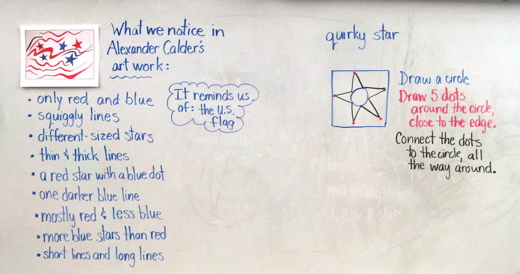 What we notice in
Alexander Calder's
art work:
It reminds us
of: the U.S.
flag
• only red and blue
• squiggly lines
• different-sized stars
• thin & thick lines
• a red star with a blue dot
• one darker blue line
• mostly red & less blue
• more blue stars than red
• short lines and long lines
quirky star
Draw a circle
Draw 5 dots
around the circle,
close to the edge.
Connect the dots
to the circle, all
the way around.